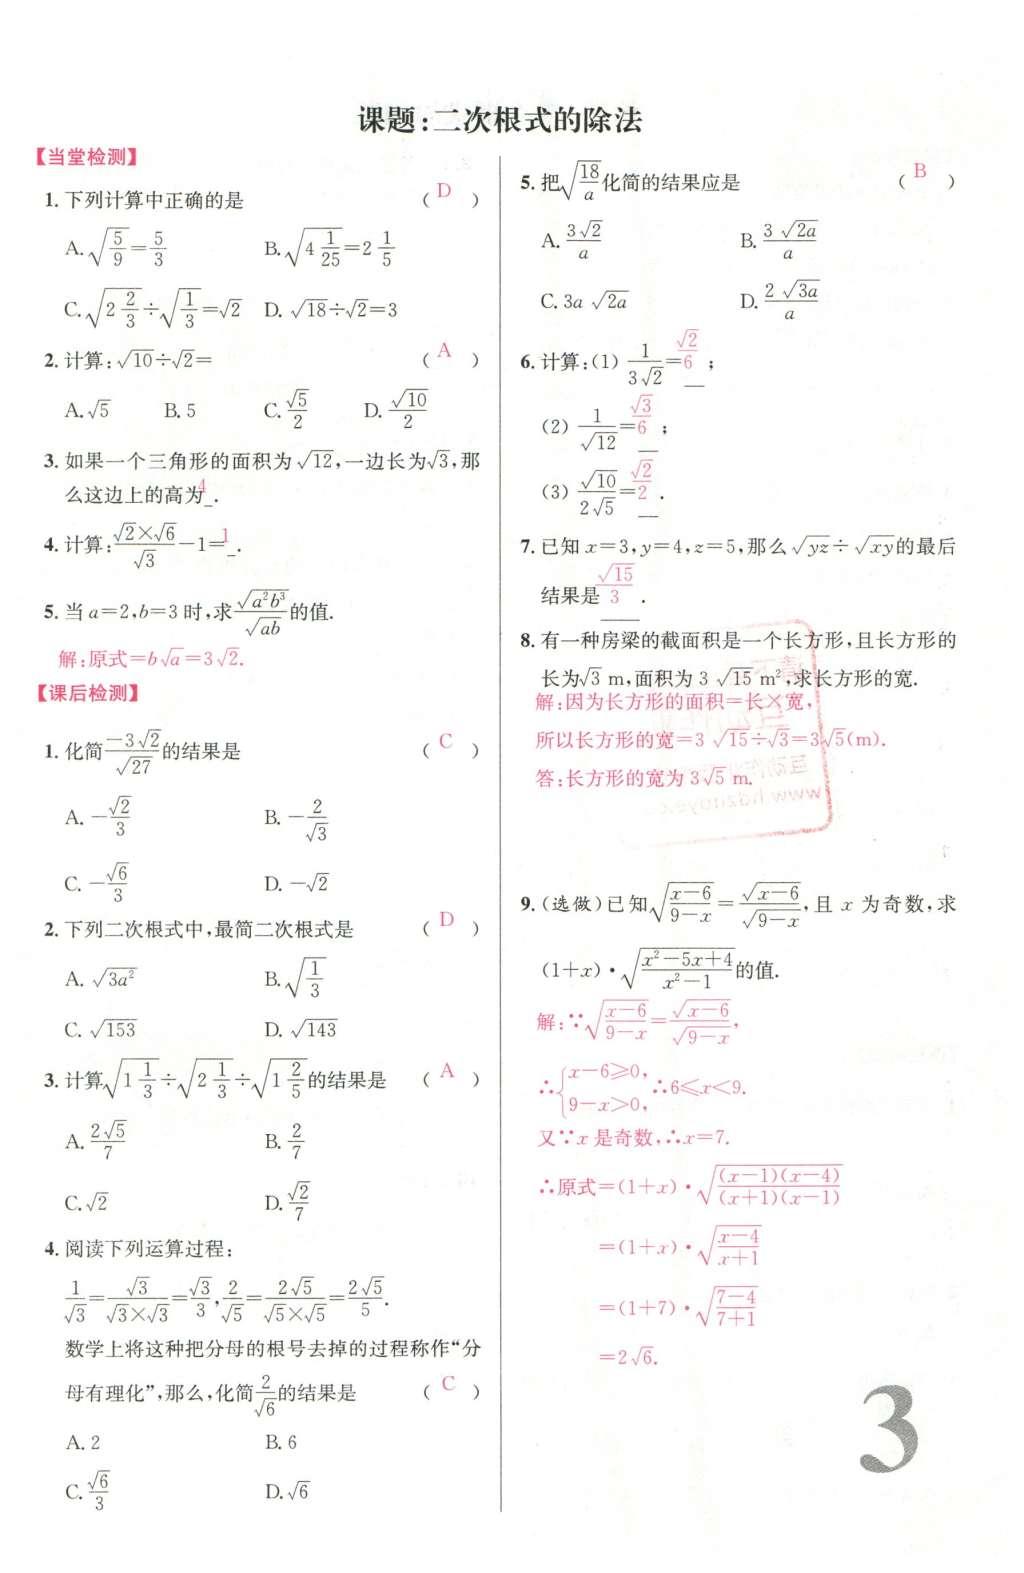 课题:二次根式的除法
【当堂检测】
1. 下列计算中正确的是 ( D )
A. √(5/9)=5/3 B. √(4 1/25)=2 1/5
C. √(2 2/3)÷√(1/3)=√2 D. √18÷√2=3
2. 计算:√10÷√2= ( A )
A. √5 B. 5 C. √5/2 D. √10/2
3. 如果一个三角形的面积为√12,一边长为√3,那
么这边上的高为4.
4. 计算:(√2×√6)/√3-1=1.
5. 当a=2,b=3时,求√(a²b³)/√(ab)的值.
解:原式=b√a=3√2.
【课后检测】
1. 化简(-3√2)/√27的结果是 ( C )
A. -√2/3 B. -2/√3
C. -√6/3 D. -√2
2. 下列二次根式中,最简二次根式是 ( D )
A. √(3a²) B. √(1/3)
C. √153 D. √143
3. 计算√(1 1/3)÷√(2 1/3)÷√(1 2/5)的结果是 ( A )
A. 2√5/7 B. 2/7
C. √2 D. √2/7
4. 阅读下列运算过程:
1/√3=√3/(√3×√3)=√3/3,2/√5=2√5/(√5×√5)=2√5/5.
数学上将这种把分母的根号去掉的过程称作“分
母有理化”,那么,化简2/√6的结果是 ( C )
A. 2 B. 6
C. √6/3 D. √6
5. 把√(18/a)化简的结果应是 ( B )
A. 3√2/a B. 3√(2a)/a
C. 3a√(2a) D. 2√(3a)/a
6. 计算:(1) 1/(3√2)=√2/6;
(2) 1/√12=√3/6;
(3) √10/(2√5)=√2/2.
7. 已知x=3,y=4,z=5,那么√(yz)÷√(xy)的最后
结果是√15/3.
8. 有一种房梁的截面积是一个长方形,且长方形的
长为√3 m,面积为3√15 m²,求长方形的宽.
解:因为长方形的面积=长×宽,
所以长方形的宽=3√15÷√3=3√5(m).
答:长方形的宽为3√5 m.
9. (选做)已知√((x-6)/(9-x))=√(x-6)/√(9-x),且x为奇数,求
(1+x)·√((x²-5x+4)/(x²-1))的值.
解:∵√((x-6)/(9-x))=√(x-6)/√(9-x),
∴{x-6≥0, 9-x>0, ∴6≤x<9.
又∵x是奇数,∴x=7.
∴原式=(1+x)·√((x-1)(x-4)/((x+1)(x-1)))
=(1+x)·√((x-4)/(x+1))
=(1+7)·√((7-4)/(7+1))
=2√6.
3